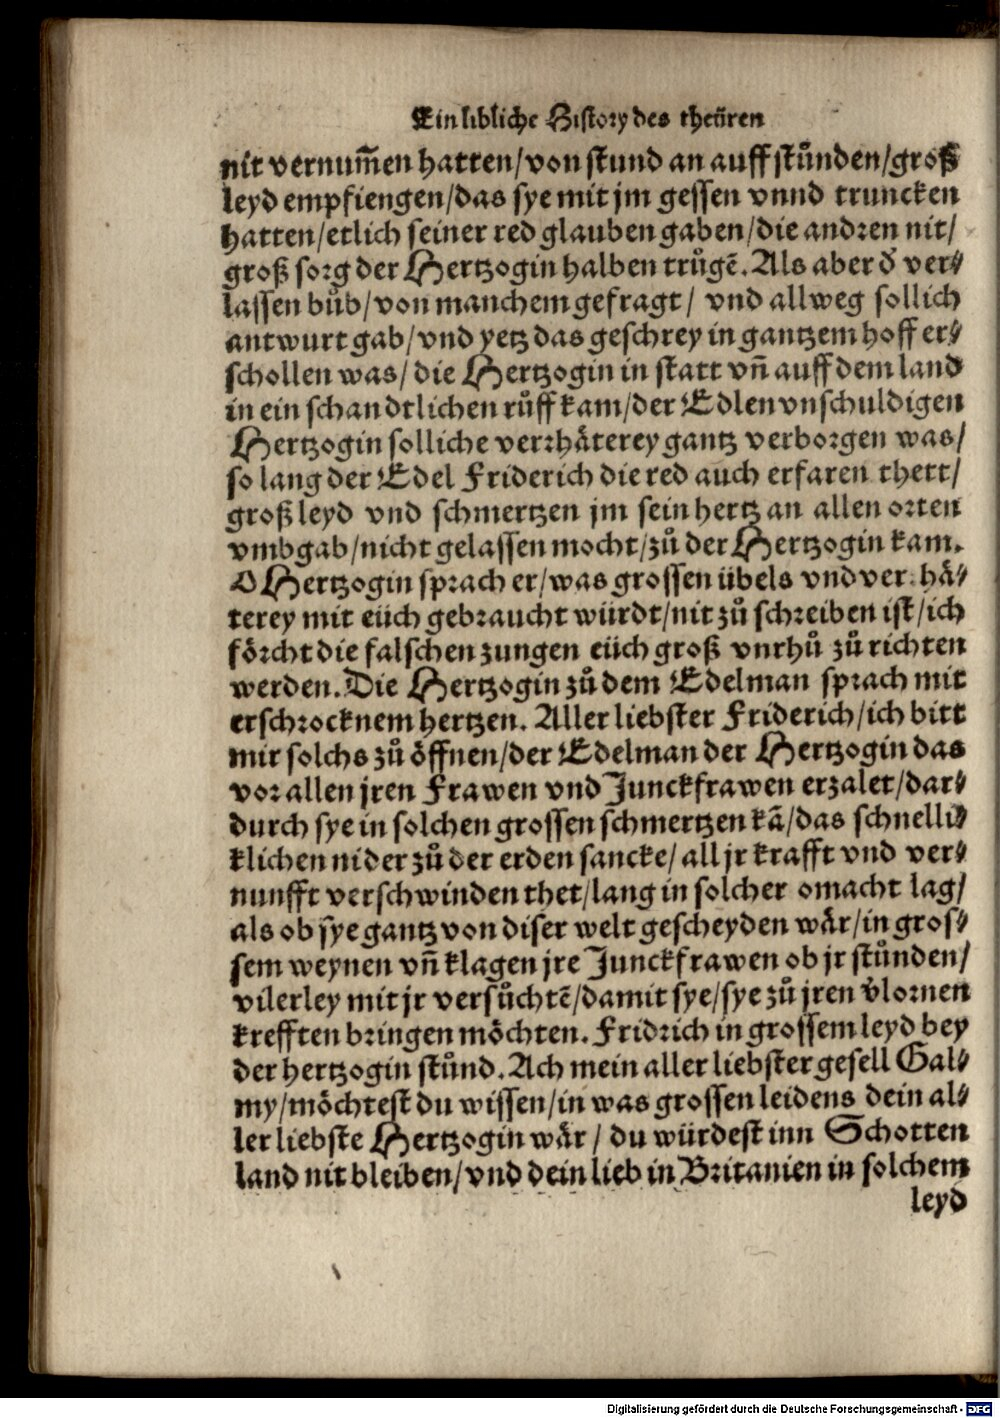 Ein libliche History des theüren
nit vernum̃en hatten/von stund an auff stůnden/groß
leyd empfiengen/das sye mit jm gessen vnnd truncken
hatten/etlich seiner red glauben gaben/die andren nit/
groß sorg der Hertzogin halben trůgē. Als aber d̕ ver⸗
lassen bůb/von manchem gefragt/ vnd allweg sollich
antwurt gab/vnd yetz das geschrey in gantzem hoff er⸗
schollen was/ die Hertzogin in statt vn̄ auff dem land
in ein schandtlichen růff kam/der Edlen vnschuldigen
Hertzogin solliche verrhäterey gantz verborgen was/
so lang der Edel Friderich die red auch erfaren thett/
groß leyd vnd schmertzen jm sein hertz an allen orten
vmbgab/nicht gelassen mocht/zů der Hertzogin kam.
O Hertzogin sprach er/was grossen übels vnd ver hä⸗
terey mit eüch gebraucht würdt/nit zů schreiben ist/ich
förcht die falschen zungen eüch groß vnrhů zů richten
werden. Die Hertzogin zů dem Edelman sprach mit
erschrocknem hertzen. Aller liebster Friderich/ich bitt
mir solchs zů öffnen/der Edelman der Hertzogin das
vor allen jren Frawen vnd Junckfrawen erzalet/dar⸗
durch sye in solchen grossen schmertzen kā/das schnelli⸗
klichen nider zů der erden sancke/ all jr krafft vnd ver⸗
nunfft verschwinden thet/lang in solcher omacht lag/
als ob sye gantz von diser welt gescheyden wär/in gros⸗
sem weynen vn̄ klagen jre Junckfrawen ob jr stůnden/
vilerley mit jr versůchtē/damit sye/sye zů jren v̕lornen
krefften bringen möchten. Fridrich in grossem leyd bey
der hertzogin stůnd. Ach mein aller liebster gesell Gal⸗
my/möchtest du wissen/in was grossen leidens dein al⸗
ler liebste Hertzogin wär/ du würdest inn Schotten
land nit bleiben/vnd dein lieb in Britanien in solchem
leyd
Digitalisierung gefördert durch die Deutsche Forschungsgemeinschaft - DFG